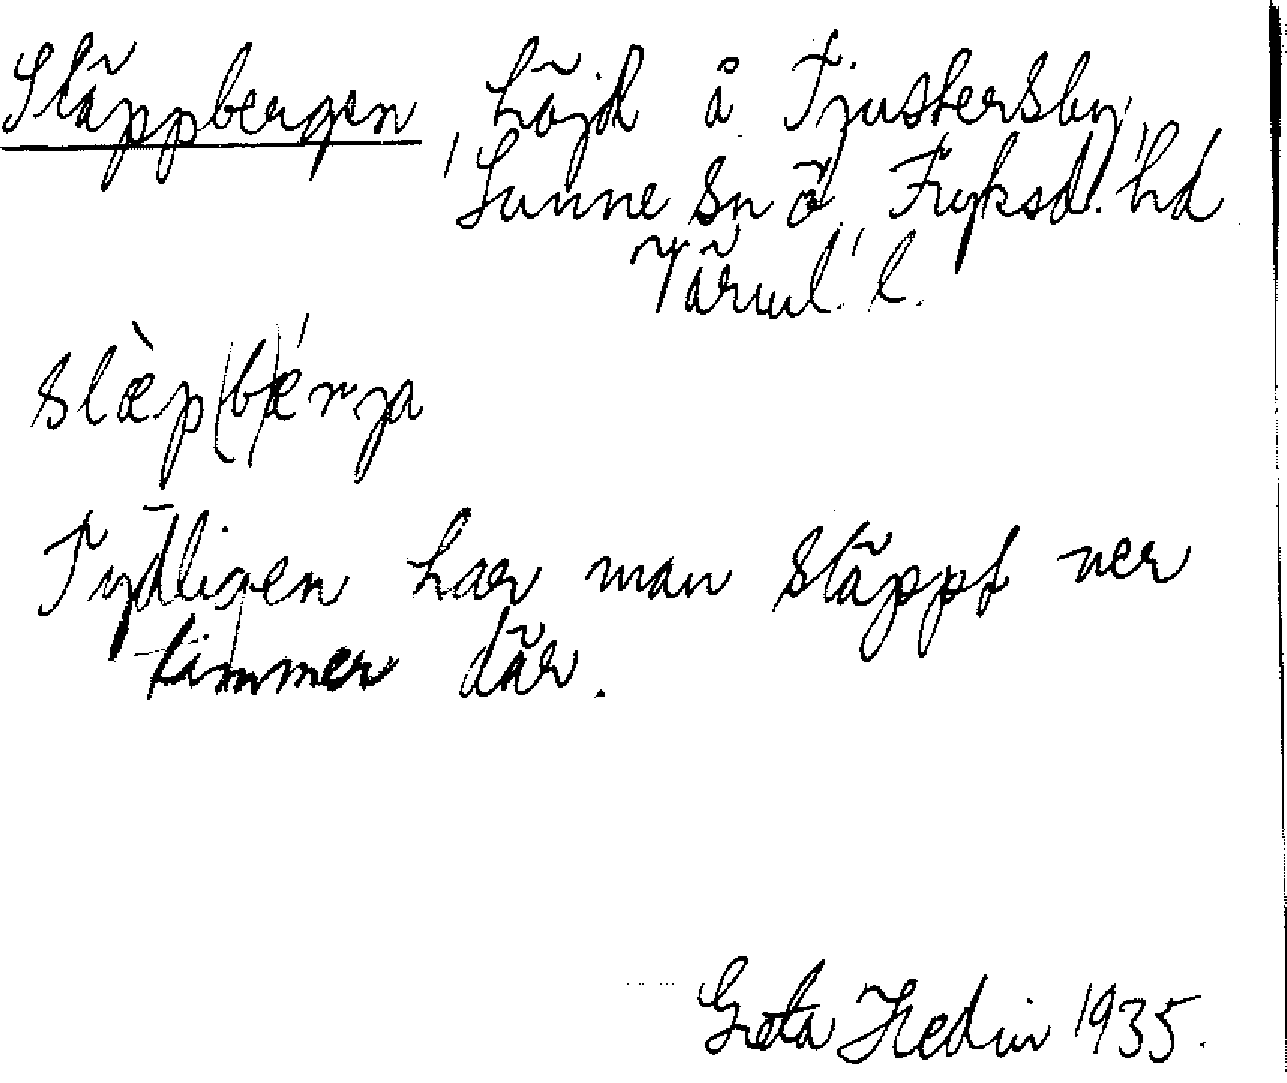 Släppbergen, höjd å Tjustersby,
Sunne sn ö. Fryksd. hd
Värml. l.
slæ̀p(b)ǽrja
Tydligen har man släppt ner
timmer där.
Greta Hedin 1935.